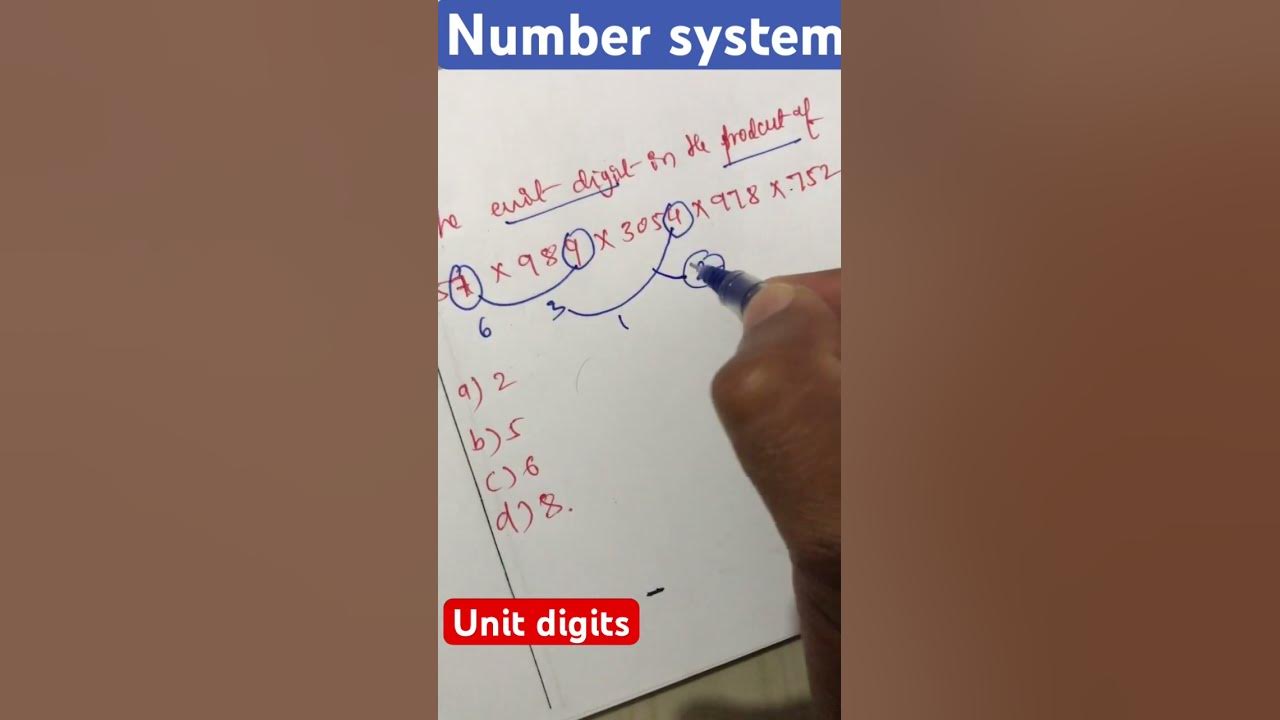 Number system
he unit digit in the prodcut of
57 × 989 × 3054 × 978 × 752
6 3 1
a) 2
b) 5
c) 6
d) 8.
Unit digits